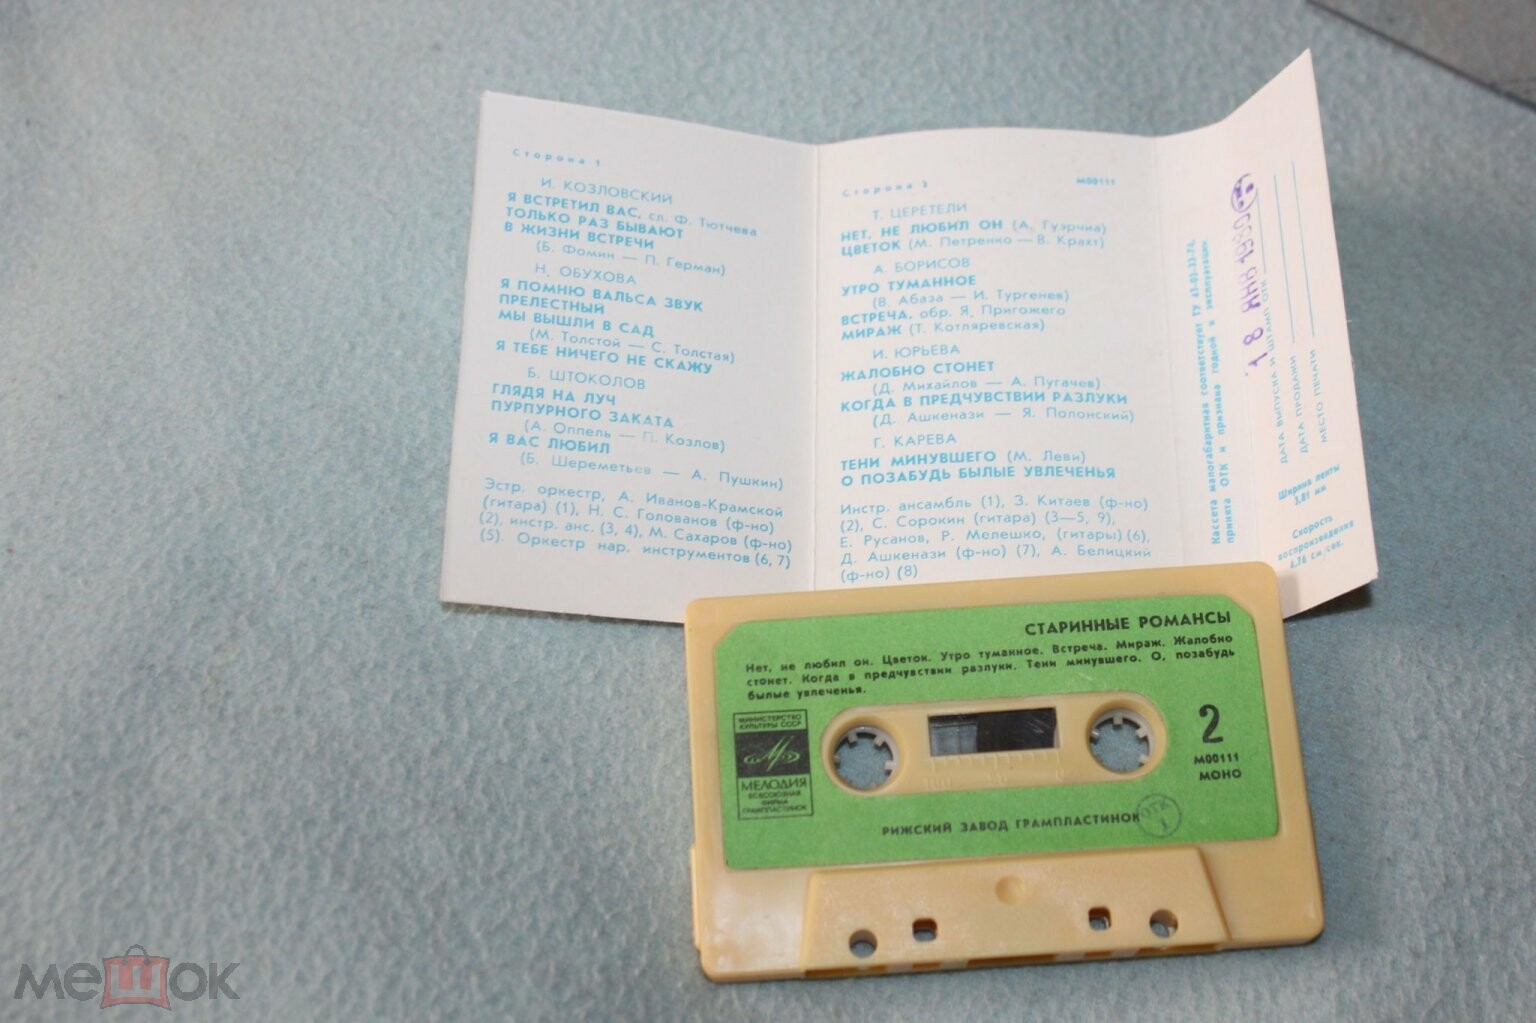 Сторона 1
И. КОЗЛОВСКИЙ
Я ВСТРЕТИЛ ВАС, сл. Ф. Тютчева
ТОЛЬКО РАЗ БЫВАЮТ
В ЖИЗНИ ВСТРЕЧИ
(Б. Фомин — П. Герман)
Н. ОБУХОВА
Я ПОМНЮ ВАЛЬСА ЗВУК
ПРЕЛЕСТНЫЙ
МЫ ВЫШЛИ В САД
(М. Толстой — С. Толстая)
Я ТЕБЕ НИЧЕГО НЕ СКАЖУ
Б. ШТОКОЛОВ
ГЛЯДЯ НА ЛУЧ
ПУРПУРНОГО ЗАКАТА
(А. Оппель — П. Козлов)
Я ВАС ЛЮБИЛ
(Б. Шереметьев — А. Пушкин)
Эстр. оркестр, А. Иванов-Крамской
(гитара) (1), Н. С. Голованов (ф-но)
(2), инстр. анс. (3, 4), М. Сахаров (ф-но)
(5). Оркестр нар. инструментов (6, 7)
Сторона 2
М00111
Т. ЦЕРЕТЕЛИ
НЕТ, НЕ ЛЮБИЛ ОН (А. Гуэрчиа)
ЦВЕТОК (М. Петренко — В. Крахт)
А. БОРИСОВ
УТРО ТУМАННОЕ
(В. Абаза — И. Тургенев)
ВСТРЕЧА, обр. Я. Пригожего
МИРАЖ (Т. Котляревская)
И. ЮРЬЕВА
ЖАЛОБНО СТОНЕТ
(Д. Михайлов — А. Пугачев)
КОГДА В ПРЕДЧУВСТВИИ РАЗЛУКИ
(Д. Ашкенази — Я. Полонский)
Г. КАРЕВА
ТЕНИ МИНУВШЕГО (М. Леви)
О ПОЗАБУДЬ БЫЛЫЕ УВЛЕЧЕНЬЯ
Инстр. ансамбль (1), З. Китаев (ф-но)
(2), С. Сорокин (гитара) (3—5, 9),
Е. Русанов, Р. Мелешко, (гитары) (6),
Д. Ашкенази (ф-но) (7), А. Белицкий
(ф-но) (8)
Кассета малогабаритная соответствует ТУ 43-03-33-74,
принята ОТК и признана годной к эксплуатации.
18 ЯНВ 1980
ДАТА ВЫПУСКА И ШТАМП ОТК
ДАТА ПРОДАЖИ
МЕСТО ПЕЧАТИ
Ширина ленты
3,81 мм
Скорость
воспроизведения
4,76 см/сек.
СТАРИННЫЕ РОМАНСЫ
Нет, не любил он. Цветок. Утро туманное. Встреча. Мираж. Жалобно
стонет. Когда в предчувствии разлуки. Тени минувшего. О, позабудь
былые увлеченья.
МИНИСТЕРСТВО
КУЛЬТУРЫ СССР
МЕЛОДИЯ
ВСЕСОЮЗНАЯ
ФИРМА
ГРАМПЛАСТИНОК
100 50 0
2
М00111
МОНО
РИЖСКИЙ ЗАВОД ГРАМПЛАСТИНОК
ОТК
1
мешок